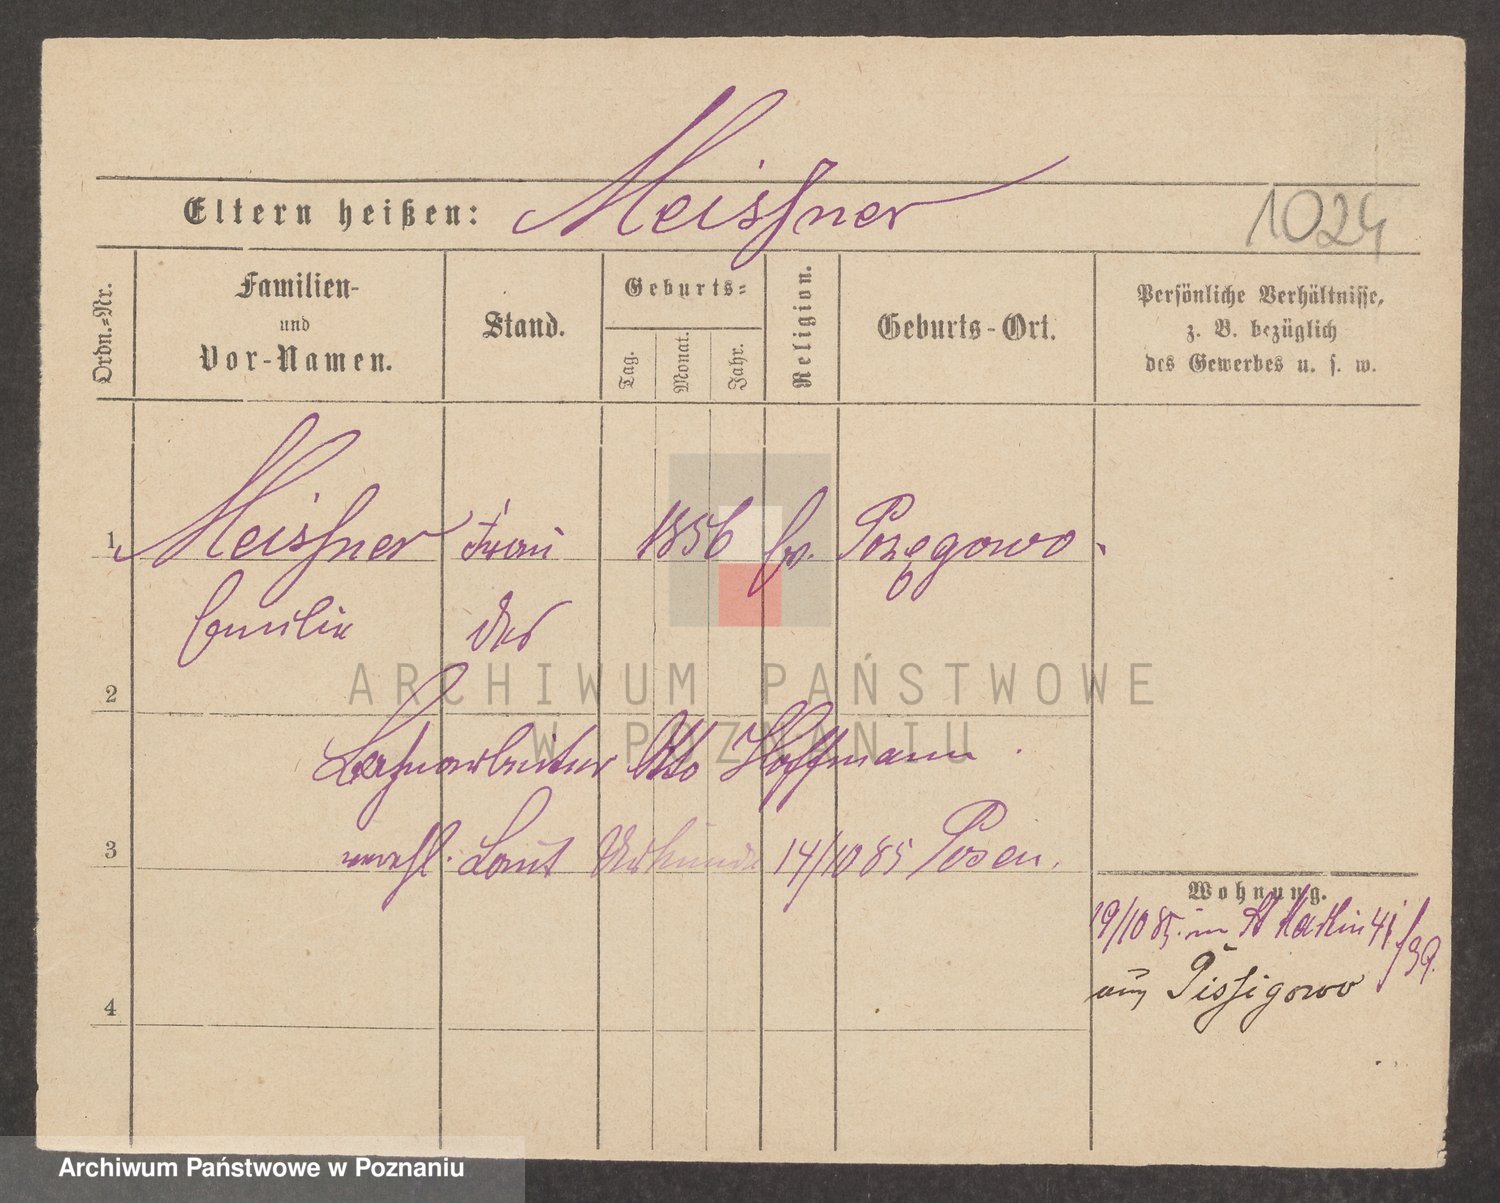 Eltern heißen: Meißner
1024
Ordn.=Nr.
Familien-
und
Vor-Namen.
Stand.
Geburts=
Tag.
Monat.
Jahr.
Religion.
Geburts-Ort.
Persönliche Verhältnisse,
z. B. bezüglich
des Gewerbes u. s. w.
1 Meißner Frau 1856 ev. Pozegowo
Emilie der
2
Bahnarbeiter Otto Hoffmann
3 verehl. Laut Urkunde 14/10 85 Posen.
Wohnung.
19/10 85. in St Martin 41/39.
aus Pissigowo
4
ARCHIWUM PAŃSTWOWE
W POZNANIU
Archiwum Państwowe w Poznaniu